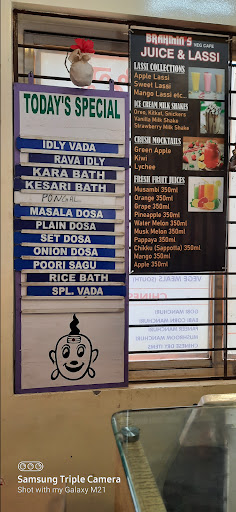 TODAY'S SPECIAL
IDLY VADA
RAVA IDLY
KARA BATH
KESARI BATH
PONGAL
MASALA DOSA
PLAIN DOSA
SET DOSA
ONION DOSA
POORI SAGU
RICE BATH
SPL. VADA
BRAHMIN'S VEG CAFE
JUICE & LASSI
LASSI COLLECTIONS
Apple Lassi
Sweet Lassi
Mango Lassi etc..
ICE CREAM MILK SHAKES
Oreo, Kitkat, Snickers
Vanilla Milk Shake
Strawberry Milk Shake
CRUSH MOCKTAILS
Green Apple
Kiwi
Lychee
FRESH FRUIT JUICES
Musambi 350ml
Orange 350ml
Grape 350ml
Pineapple 350ml
Water Melon 350ml
Musk Melon 350ml
Pappaya 350ml
Chikku (Sappotta) 350ml
Mango 350ml
Apple 350ml
Samsung Triple Camera
Shot with my Galaxy M21